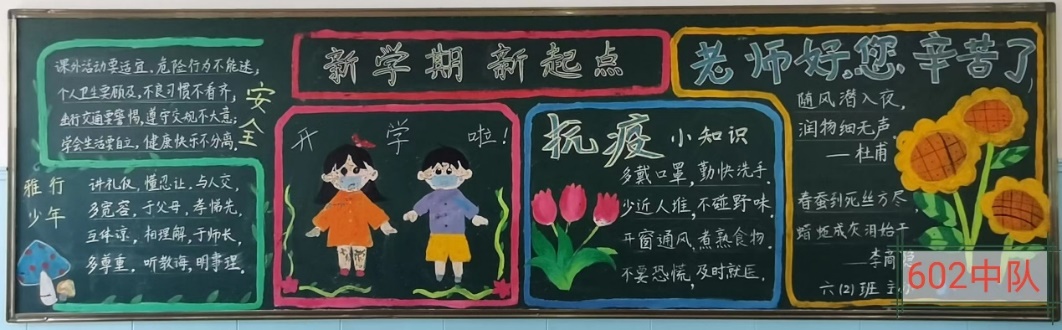 新学期 新起点
老师好,您辛苦了
安全
课外活动要适宜,危险行为不能迷;
个人卫生要顾及,不良习惯不看齐;
出行交通要警惕,遵守交规不大意;
学会生活要自立,健康快乐不分离。
雅行
少年
讲礼仪,懂忍让,与人交,
多宽容,于父母,孝悌先,
互体谅,相理解,于师长,
多尊重,听教诲,明事理。
开学啦!
抗疫小知识
多戴口罩,勤快洗手.
少近人堆,不碰野味.
开窗通风,煮熟食物.
不要恐慌,及时就医.
随风潜入夜,
润物细无声
——杜甫
春蚕到死丝方尽,
蜡炬成灰泪始干
——李商隐
六(2)班
602中队